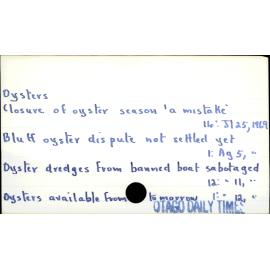 Oysters
Closure of oyster season 'a mistake'
16: Jl 25, 1969
Bluff oyster dispute not settled yet
1: Ag 5, "
Oyster dredges from banned boat sabotaged
12: " 11, "
Oysters available from tomorrow 1: " 12, "
OTAGO DAILY TIMES